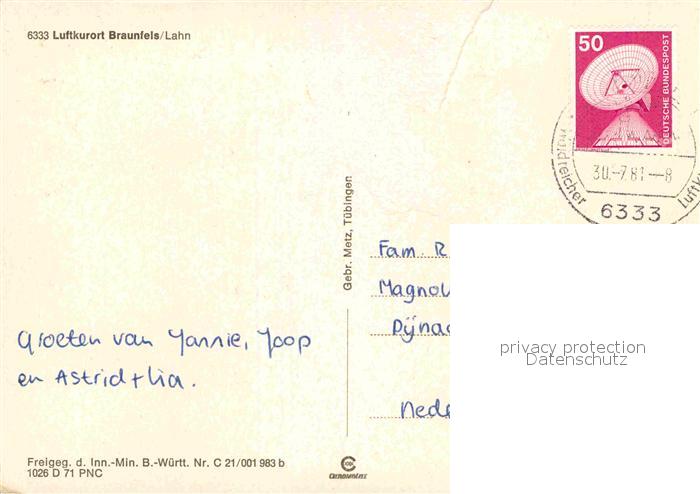 6333 Luftkurort Braunfels/Lahn
50
DEUTSCHE BUNDESPOST
30.-7.81-8
6333
Gebr. Metz, Tübingen
Fam. R
Magnol
Dijna
Groeten van Jannie, Joop
en Astrid + Lia.
Nede
privacy protection
Datenschutz
Freigeg. d. Inn.-Min. B.-Württ. Nr. C 21/001 983 b
1026 D 71 PNC